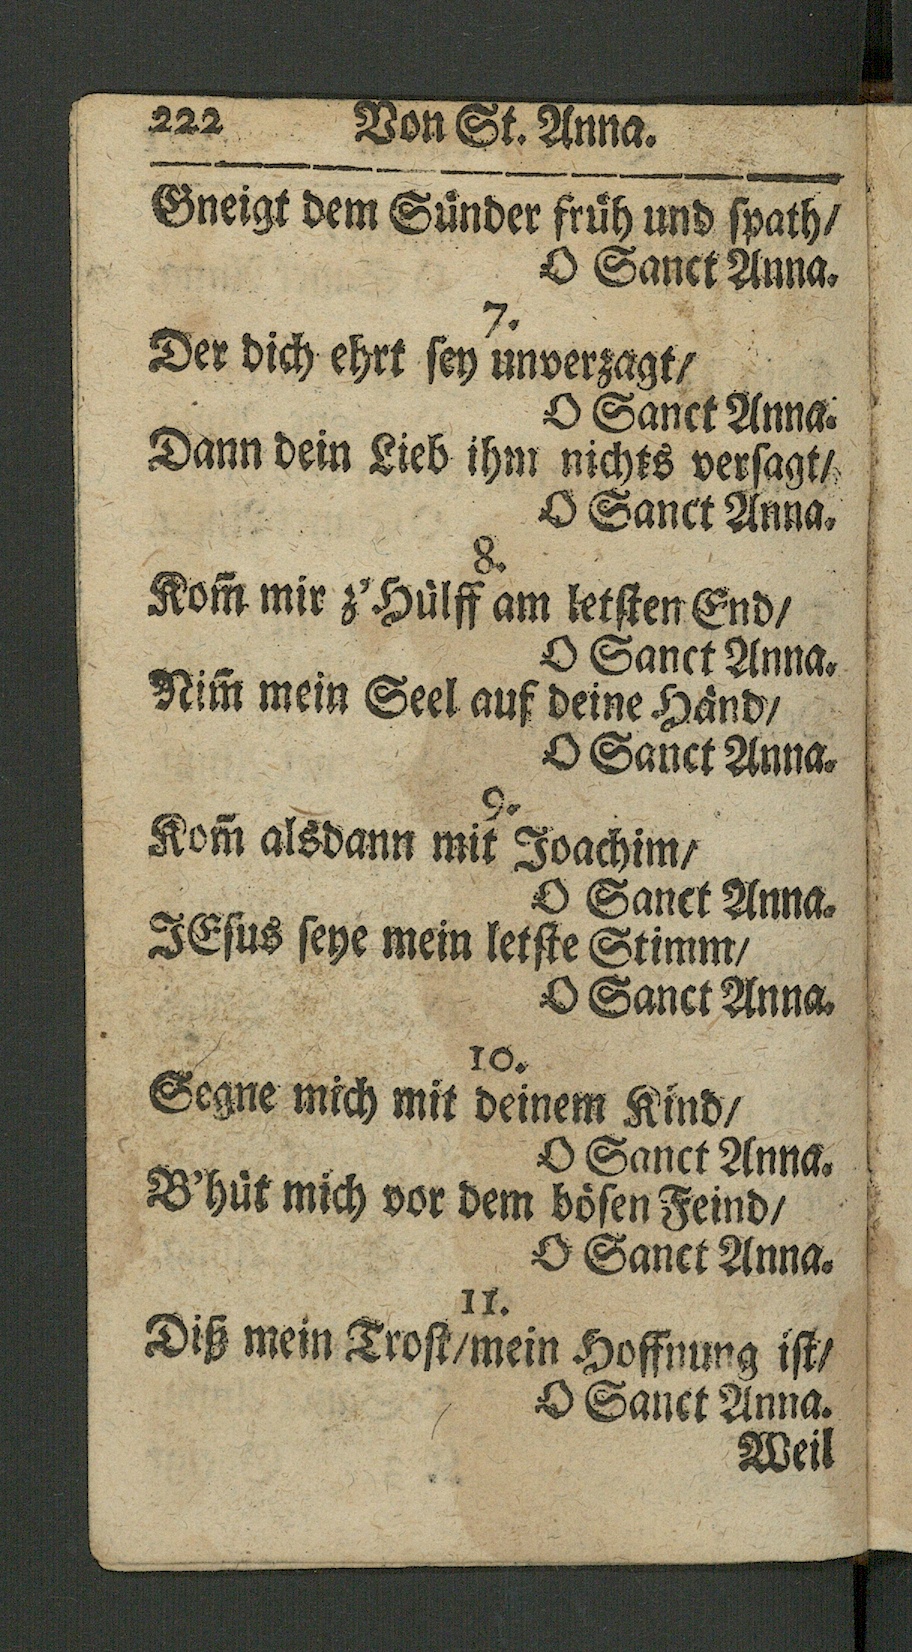 222 Von St. Anna.
Gneigt dem Sünder früh und spath/
O Sanct Anna.
7.
Der dich ehrt sey unverzagt/
O Sanct Anna.
Dann dein Lieb ihm nichts versagt/
O Sanct Anna.
8.
Kom̃ mir z'Hülff am letsten End/
O Sanct Anna.
Nim̃ mein Seel auf deine Händ/
O Sanct Anna.
9.
Kom̃ alsdann mit Joachim/
O Sanct Anna.
JEsus seye mein letste Stimm/
O Sanct Anna.
10.
Segne mich mit deinem Kind/
O Sanct Anna.
B'hüt mich vor dem bösen Feind/
O Sanct Anna.
11.
Diß mein Trost/mein Hoffnung ist/
O Sanct Anna.
Weil